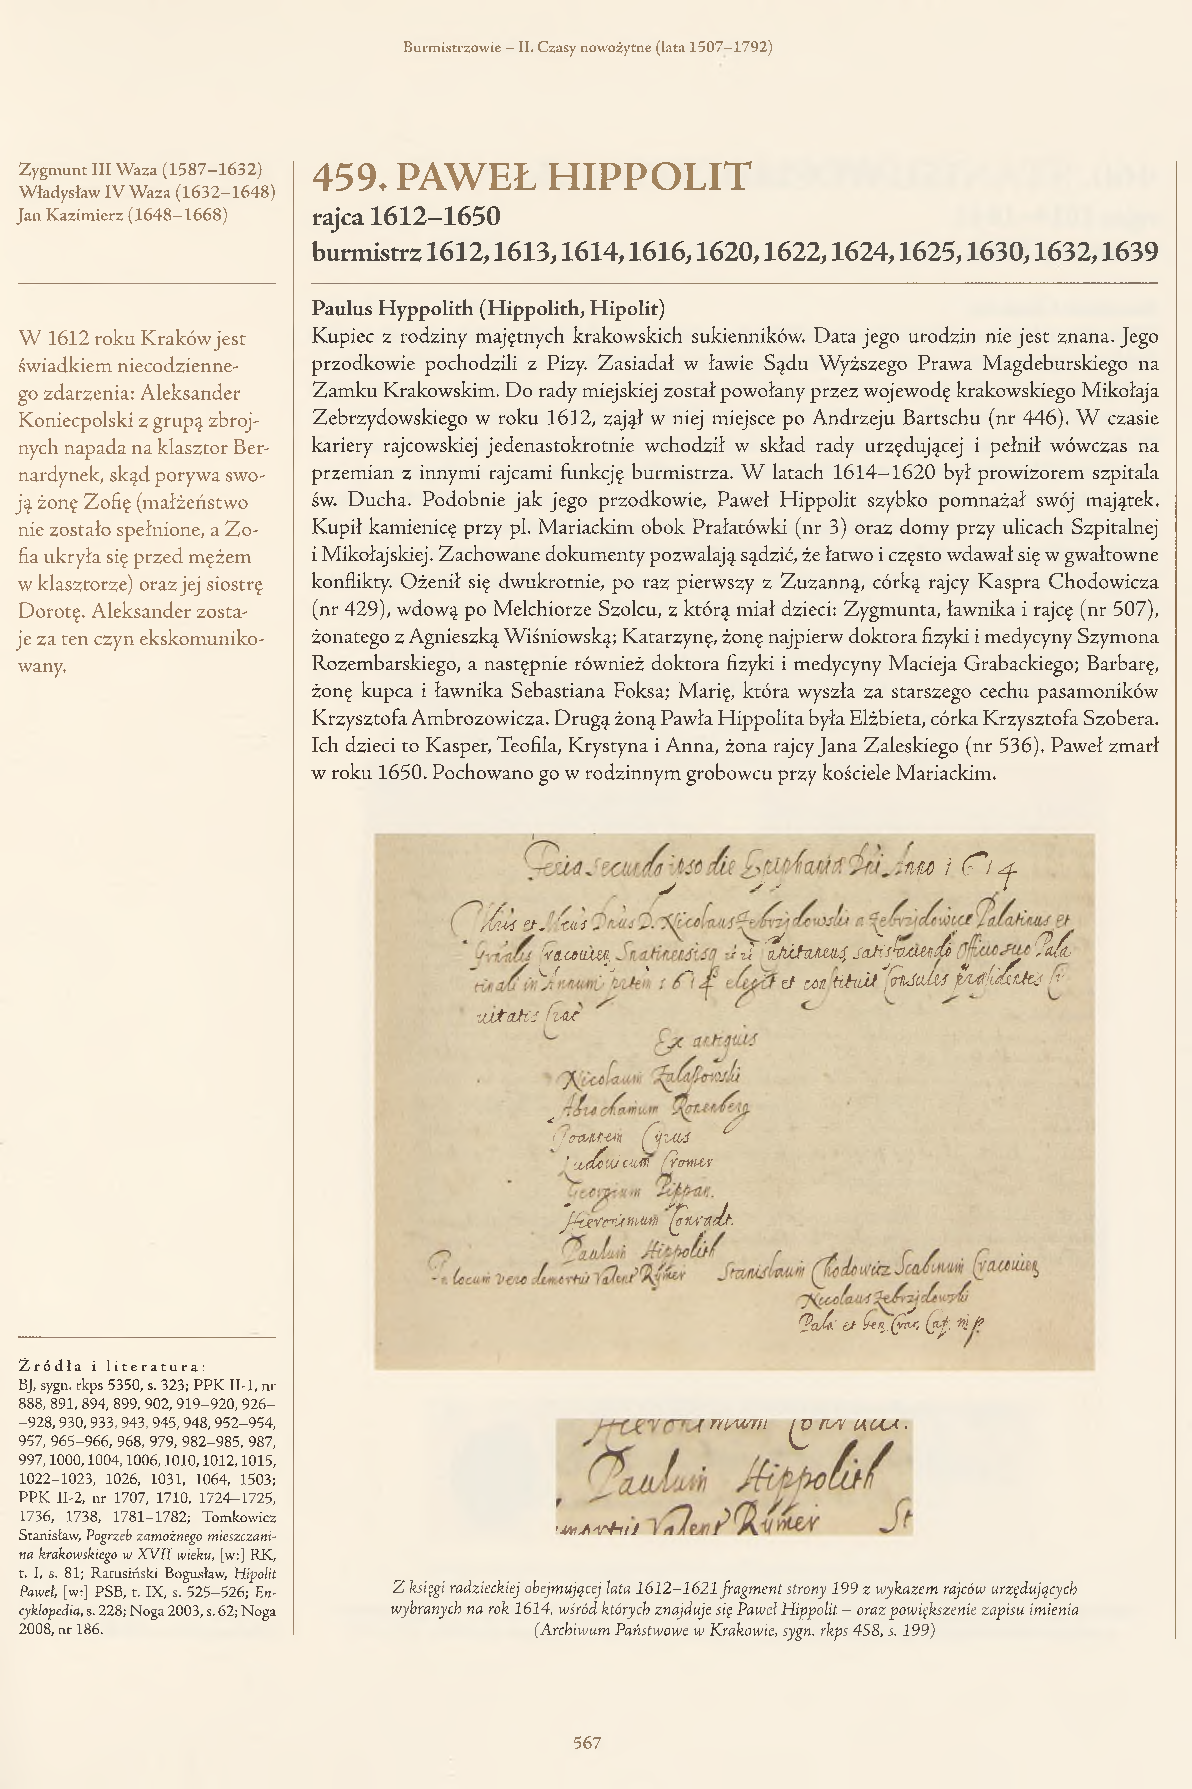 Burmistrzowie – II. Czasy nowożytne (lata 1507–1792)
Zygmunt III Waza (1587–1632)
Władysław IV Waza (1632–1648)
Jan Kazimierz (1648–1668)
W 1612 roku Kraków jest
świadkiem niecodzienne-
go zdarzenia: Aleksander
Koniecpolski z grupą zbroj-
nych napada na klasztor Ber-
nardynek, skąd porywa swo-
ją żonę Zofię (małżeństwo
nie zostało spełnione, a Zo-
fia ukryła się przed mężem
w klasztorze) oraz jej siostrę
Dorotę. Aleksander zosta-
je za ten czyn ekskomuniko-
wany.
Źródła i literatura:
BJ, sygn. rkps 5350, s. 323; PPK II-1, nr
888, 891, 894, 899, 902, 919–920, 926–
–928, 930, 933, 943, 945, 948, 952–954,
957, 965–966, 968, 979, 982–985, 987,
997, 1000, 1004, 1006, 1010, 1012, 1015,
1022–1023, 1026, 1031, 1064, 1503;
PPK II-2, nr 1707, 1710, 1724–1725,
1736, 1738, 1781–1782; Tomkowicz
Stanisław, Pogrzeb zamożnego mieszczani-
na krakowskiego w XVII wieku, [w:] RK,
t. I, s. 81; Ratusiński Bogusław, Hipolit
Paweł, [w:] PSB, t. IX, s. 525–526; En-
cyklopedia, s. 228; Noga 2003, s. 62; Noga
2008, nr 186.
459. PAWEŁ HIPPOLIT
rajca 1612–1650
burmistrz 1612, 1613, 1614, 1616, 1620, 1622, 1624, 1625, 1630, 1632, 1639
Paulus Hyppolith (Hippolith, Hipolit)
Kupiec z rodziny majętnych krakowskich sukienników. Data jego urodzin nie jest znana. Jego
przodkowie pochodzili z Pizy. Zasiadał w ławie Sądu Wyższego Prawa Magdeburskiego na
Zamku Krakowskim. Do rady miejskiej został powołany przez wojewodę krakowskiego Mikołaja
Zebrzydowskiego w roku 1612, zajął w niej miejsce po Andrzeju Bartschu (nr 446). W czasie
kariery rajcowskiej jedenastokrotnie wchodził w skład rady urzędującej i pełnił wówczas na
przemian z innymi rajcami funkcję burmistrza. W latach 1614–1620 był prowizorem szpitala
św. Ducha. Podobnie jak jego przodkowie, Paweł Hippolit szybko pomnażał swój majątek.
Kupił kamienicę przy pl. Mariackim obok Prałatówki (nr 3) oraz domy przy ulicach Szpitalnej
i Mikołajskiej. Zachowane dokumenty pozwalają sądzić, że łatwo i często wdawał się w gwałtowne
konflikty. Ożenił się dwukrotnie, po raz pierwszy z Zuzanną, córką rajcy Kaspra Chodowicza
(nr 429), wdową po Melchiorze Szolcu, z którą miał dzieci: Zygmunta, ławnika i rajcę (nr 507),
żonatego z Agnieszką Wiśniowską; Katarzynę, żonę najpierw doktora fizyki i medycyny Szymona
Rozembarskiego, a następnie również doktora fizyki i medycyny Macieja Grabackiego; Barbarę,
żonę kupca i ławnika Sebastiana Foksa; Marię, która wyszła za starszego cechu pasamoników
Krzysztofa Ambrozowicza. Drugą żoną Pawła Hippolita była Elżbieta, córka Krzysztofa Szobera.
Ich dzieci to Kasper, Teofila, Krystyna i Anna, żona rajcy Jana Zaleskiego (nr 536). Paweł zmarł
w roku 1650. Pochowano go w rodzinnym grobowcu przy kościele Mariackim.
Feria secunda ipso die Epiphaniae Dni Anno 1614
et Dnus D. Nicolaus Zebrzidowski a Zebrzidowice Palatinus et
Gnralis Cracouien Capitaneus, satisfaciendo Officio suo Pala
tinali in Annum 1614 elegit et constituit Consules praesidentes Ci
uitatis Crac
Ex antiquis
Nicolaum Zalaszowski
Abrahamum Ronenberg
Joannem Cyrus
Ludouicum Cromer
Georgium Pippan.
Hieronimum Conradt.
Paulum Hippolith
In locum vero demortui Valent Rymer Stanislaum Chodowicz Scabinum Cracouien
Nicolaus Zebrzidowski
Pala: et Gen. Crac. Cap. mp
Hieronimum Conradt.
Paulum Hippolith
Valent Rymer St
Z księgi radzieckiej obejmującej lata 1612–1621 fragment strony 199 z wykazem rajców urzędujących
wybranych na rok 1614, wśród których znajduje się Paweł Hippolit – oraz powiększenie zapisu imienia
(Archiwum Państwowe w Krakowie, sygn. rkps 458, s. 199)
567